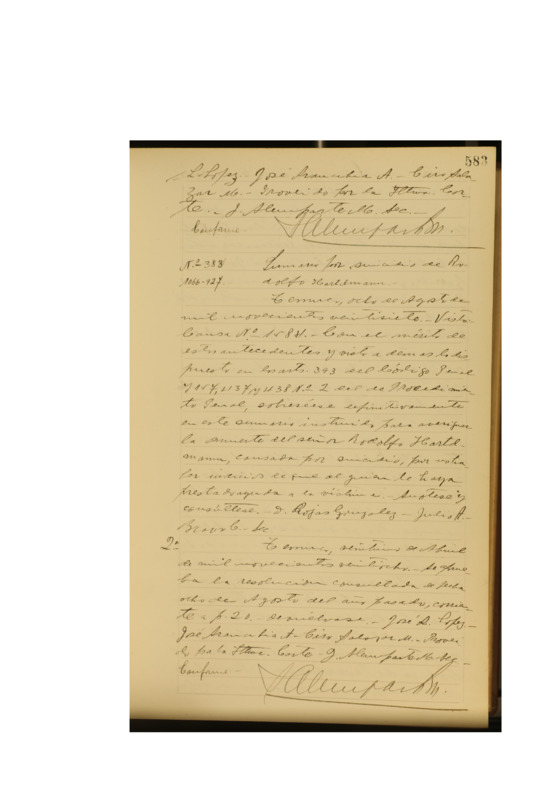 583
L. Lopez - José Arancibia A - Ciro Sala
zar M. - Proveido por la Iltma. Cor
te. - J. Alemparte M. Sec. -
Conforme
N.º 383 Sumario por suicidio de Ro
dolfo Hartdmann
Temuco, ocho de Agosto de
mil novecientos veintisiete. - Vista
Causa Nº - Con el mérito de
estos antecedentes y visto ademas lo dis
puesto en los arts. 393 del Código Penal
y 407, 437, y 438 Nº 2 del de Procedimien
to Penal, sobreséese definitivamente
en este sumario instruido para averiguar
la muerte del señor Rodolfo Hartd
mann, causada por suicidio, por no ha
ber indicios de que alguien le haya
prestado ayuda a la víctima. Anótese y
consúltese. - D. Rojas Gonzalez - Julio A.
Bravo C. - Sec
2ª Temuco, veintiuno de Abril
de mil novecientos veintiocho. - Se aprue
ba la resolucion consultada de fecha
ocho de Agosto del año pasado, corrien
te a p. 20. - devuélvase. - José L. Lopez -
José Arancibia A - Ciro Salazar M. - Provei
do por la Iltma. Corte - J. Alemparte M. Sec. -
Conforme